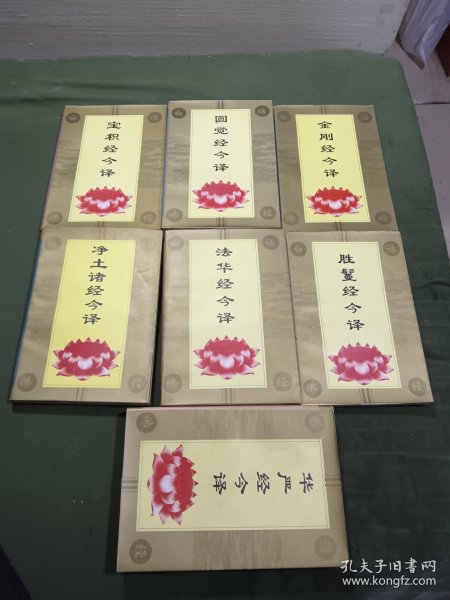 宝积经今译
圆觉经今译
金刚经今译
净土诸经今译
法华经今译
胜鬘经今译
华严经今译
孔夫子旧书网
www.kongfz.com